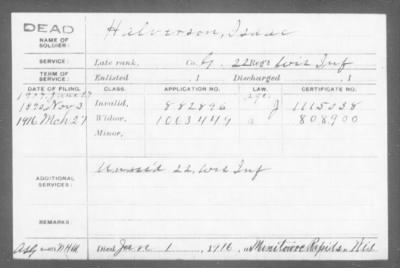 DEAD
NAME OF SOLDIER:
Halverson, Isaac
SERVICE:
Late rank, Co. G. 22 Reg't Wis Inf
TERM OF SERVICE:
Enlisted , 1 Discharged , 1
DATE OF FILING. CLASS. APPLICATION NO. LAW. CERTIFICATE NO.
age
1892 Nov 3 Invalid, 882896 J 1115038
1916 Mch 27 Widow, 1063449 808900
Minor,
ADDITIONAL SERVICES:
Unassi'd 22, Wis Inf
REMARKS:
Died 1, 1916, at Manitowoc Rapids, Wis